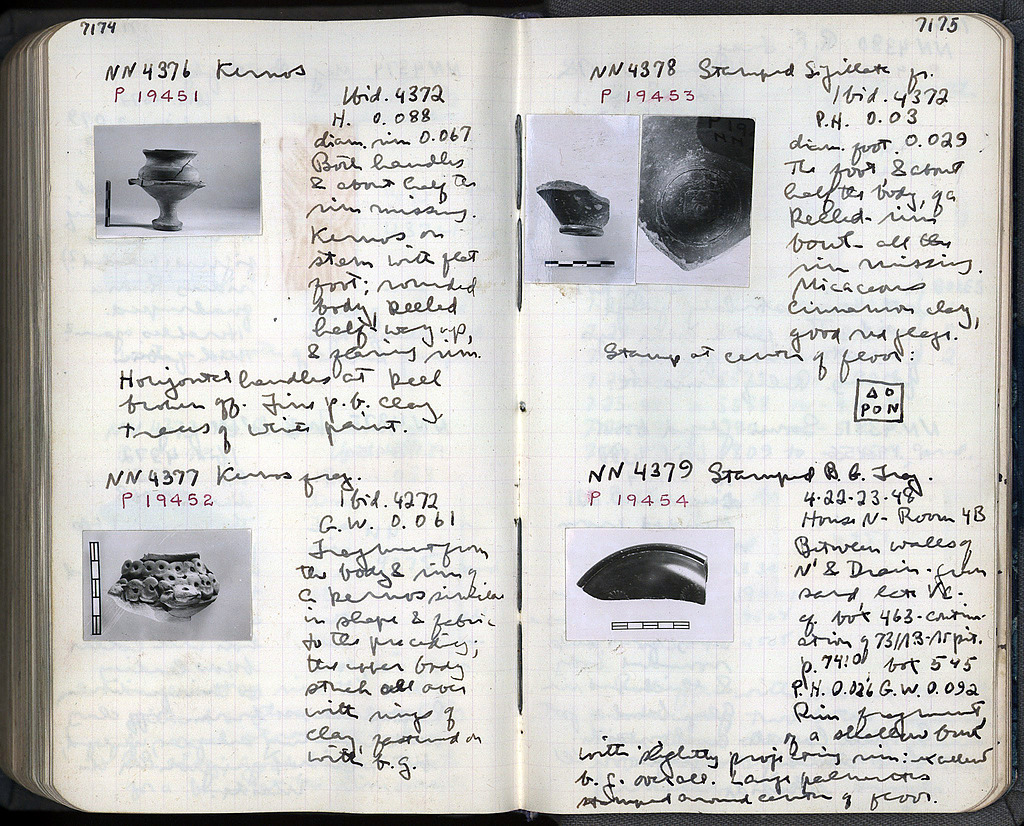 7174
NN 4376 Kernos
P 19451
Ibid. 4372
H. 0.088
diam. rim 0.067
Both handles
& about half the
rim missing.
Kernos on
stem with flat
foot; rounded
body, keeled
half way up,
& flaring rim.
Horizontal handles at keel
broken off. Fine p.b. clay
traces of white paint.
NN 4377 Kernos frag.
P 19452
Ibid. 4272
G.W. 0.061
Fragment from
the body & rim of
a kernos similar
in shape & fabric
to the preceding;
the upper body
stuck all over
with rings of
clay, fastened on
with b.g.
7175
NN 4378 Stamped Sigillata fr.
P 19453
Ibid. 4372
P.H. 0.03
diam. foot 0.029
The foot & about
half the body, of a
keeled-rim
bowl - all the
rim missing.
Micaceous
cinnamon clay,
good red glaze.
Stamp at center of floor:
Δ Ο
Ρ Ο Ν
NN 4379 Stamped B.G. Frag.
P 19454
4-22-23-48
House N - Room 4B
Between walls of
N' & Drain - from
sand late V c.
cf. box 463 - continu-
ation of 73/ΛΒ-15 pit.
p. 7410 box 545
P.H. 0.026 G.W. 0.092
Rim fragment
of a shallow bowl
with slightly projecting rim: excellent
b.g. overall. Large palmettes
stamped around center of floor.